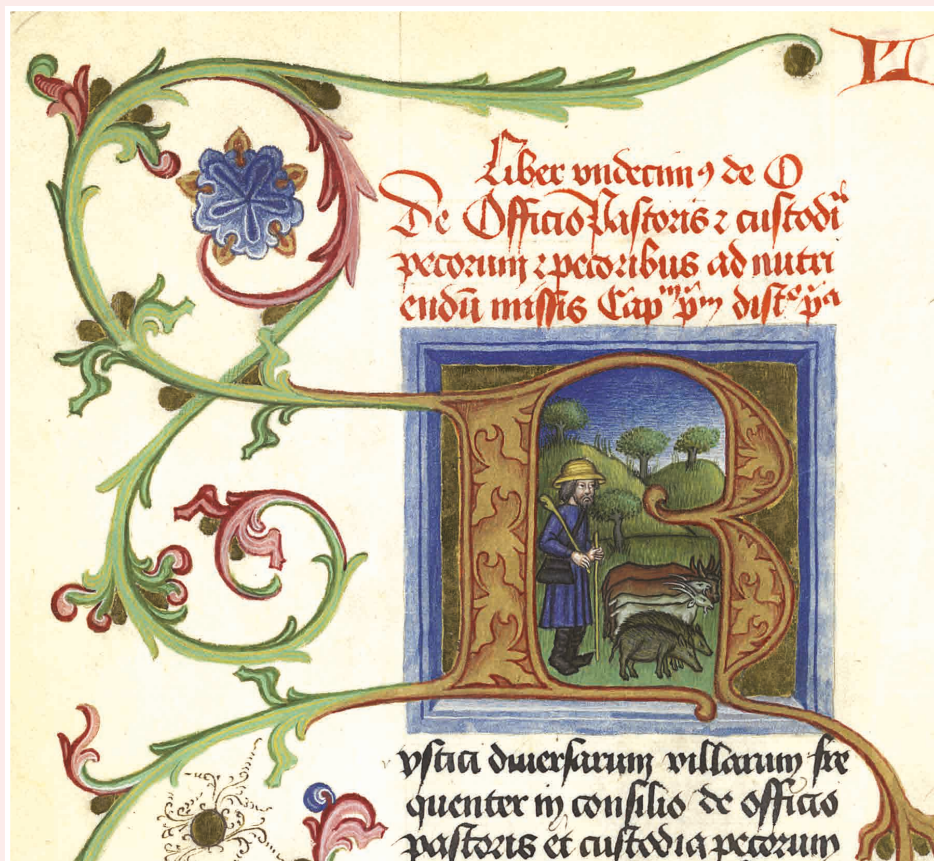 Liber vndecimꝰ de O
De Officio Pastoris ⁊ custodi
pecorum ⁊ pecoribus ad nutri
endū missis Cap pm dist pa
R
ystici diuersarum villarum fre
quenter in consilio de officio
pastoris et custodia pecorum